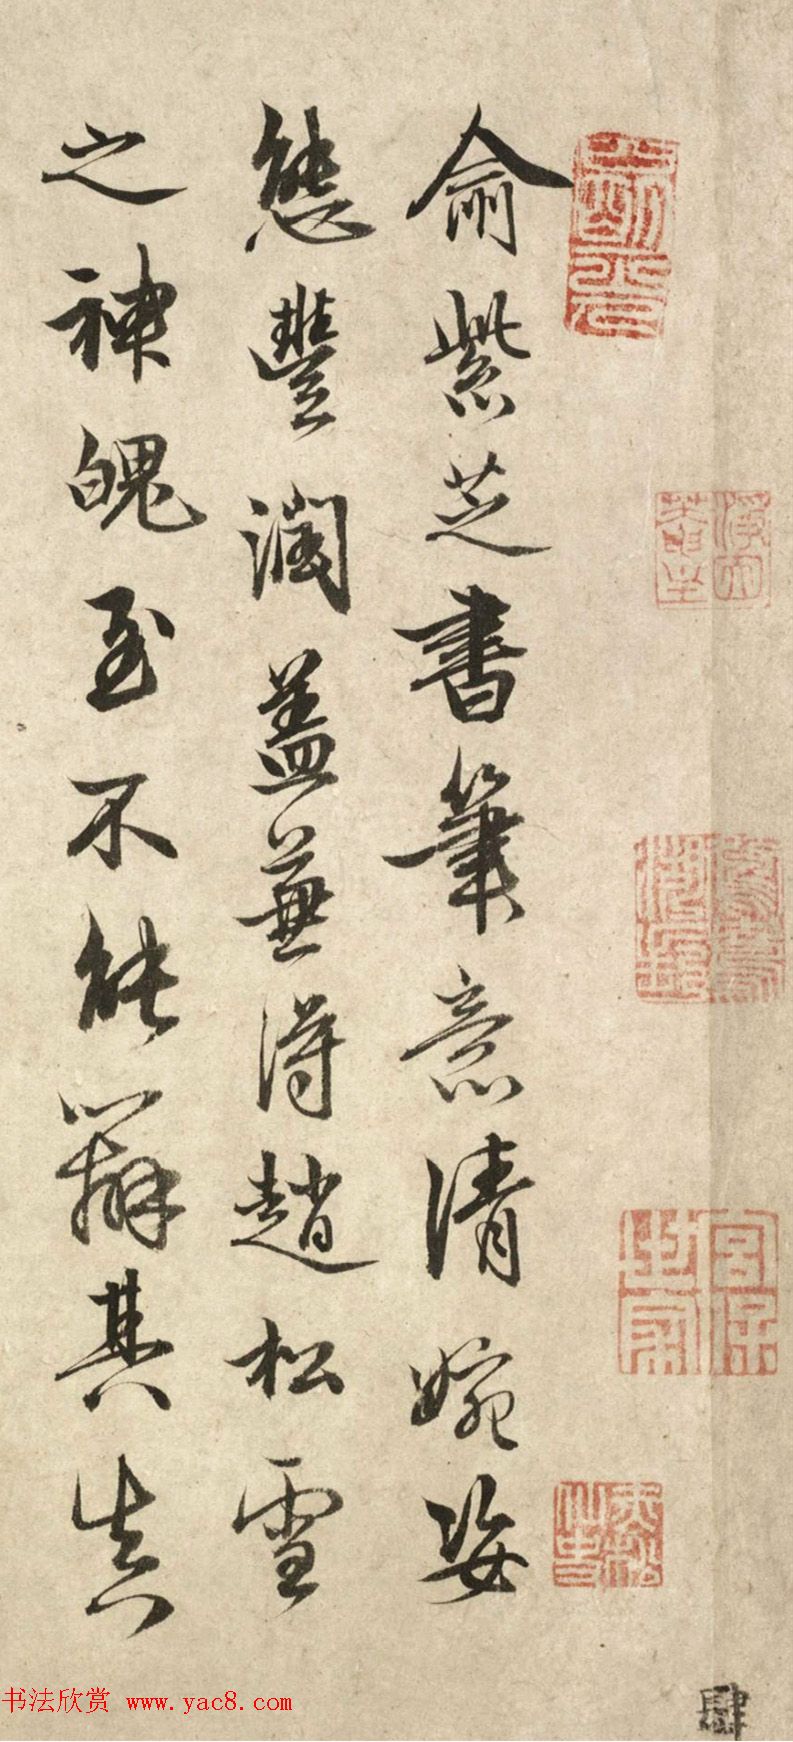 俞紫芝書筆意清婉姿
態豐潤蓋兼得趙松雪
之神魄至不能辯其真
肆
书法欣赏 www.yac8.com